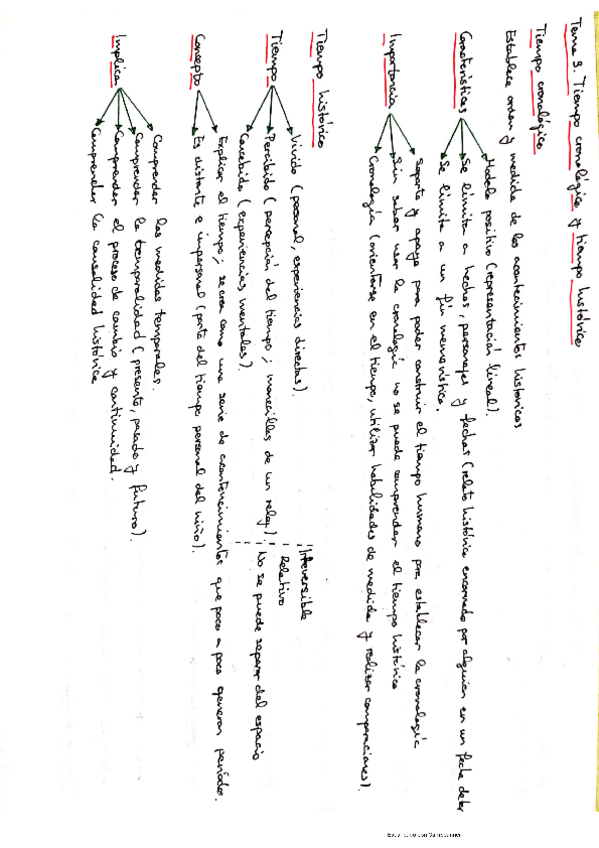 Tema 3. Tiempo cronológico y tiempo histórico
Tiempo cronológico
Establece orden y medida de los acontecimientos históricos
Características
Modelo positivo (representación lineal).
Se limita a hechos, personajes y fechas (relato histórico encarnado por alguien en un fecha deter
Se limita a un fin memorístico.
Importancia
Soporte y apoyo para poder construir el tiempo humano para establecer la cronología
Sin saber usar la cronología no se puede comprender el tiempo histórico
Cronología (orientarse en el tiempo, utilizar habilidades de medida y realizar comparaciones).
Tiempo histórico
Tiempo
Vivido (personal, experiencias directas).
Percibido (percepción del tiempo; manecillas de un reloj).
Concebido (experiencias mentales).
Irreversible
Relativo
No se puede separar del espacio
Concepto
Explicar el tiempo; se crea como una serie de acontecimientos que poco a poco generan períodos.
Es distante e impersonal (parte del tiempo personal del niño).
Implica
Comprender las medidas temporales.
Comprender la temporalidad (presente, pasado y futuro).
Comprender el proceso de cambio y continuidad.
Comprender la causalidad histórica